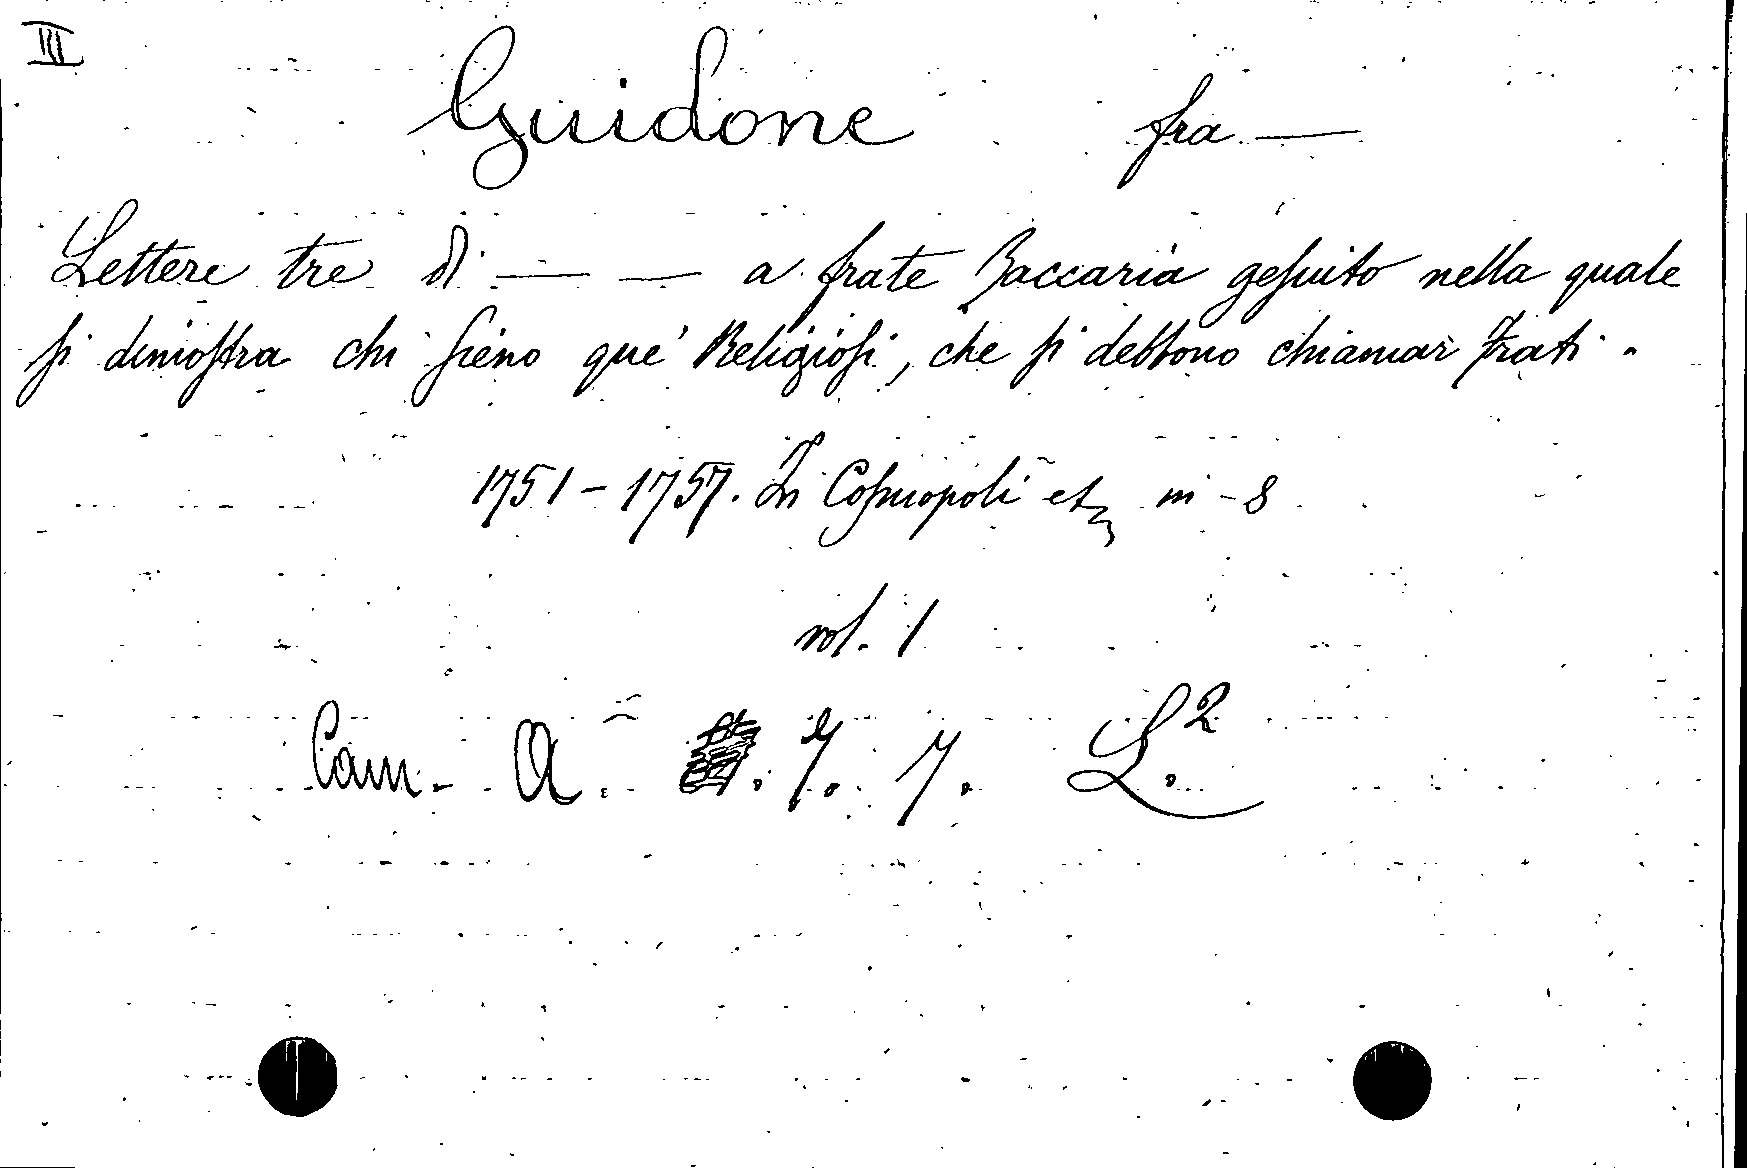 III
Guidone fra —
Lettere tre di — — a frate Zaccaria gesuito nella quale
si dimostra chi sieno que' Religiosi, che si debbono chiamar Frati.
1751 - 1757. In Cosmopoli etc in - 8
vol. 1
Cam. A. 7. 7. L.2